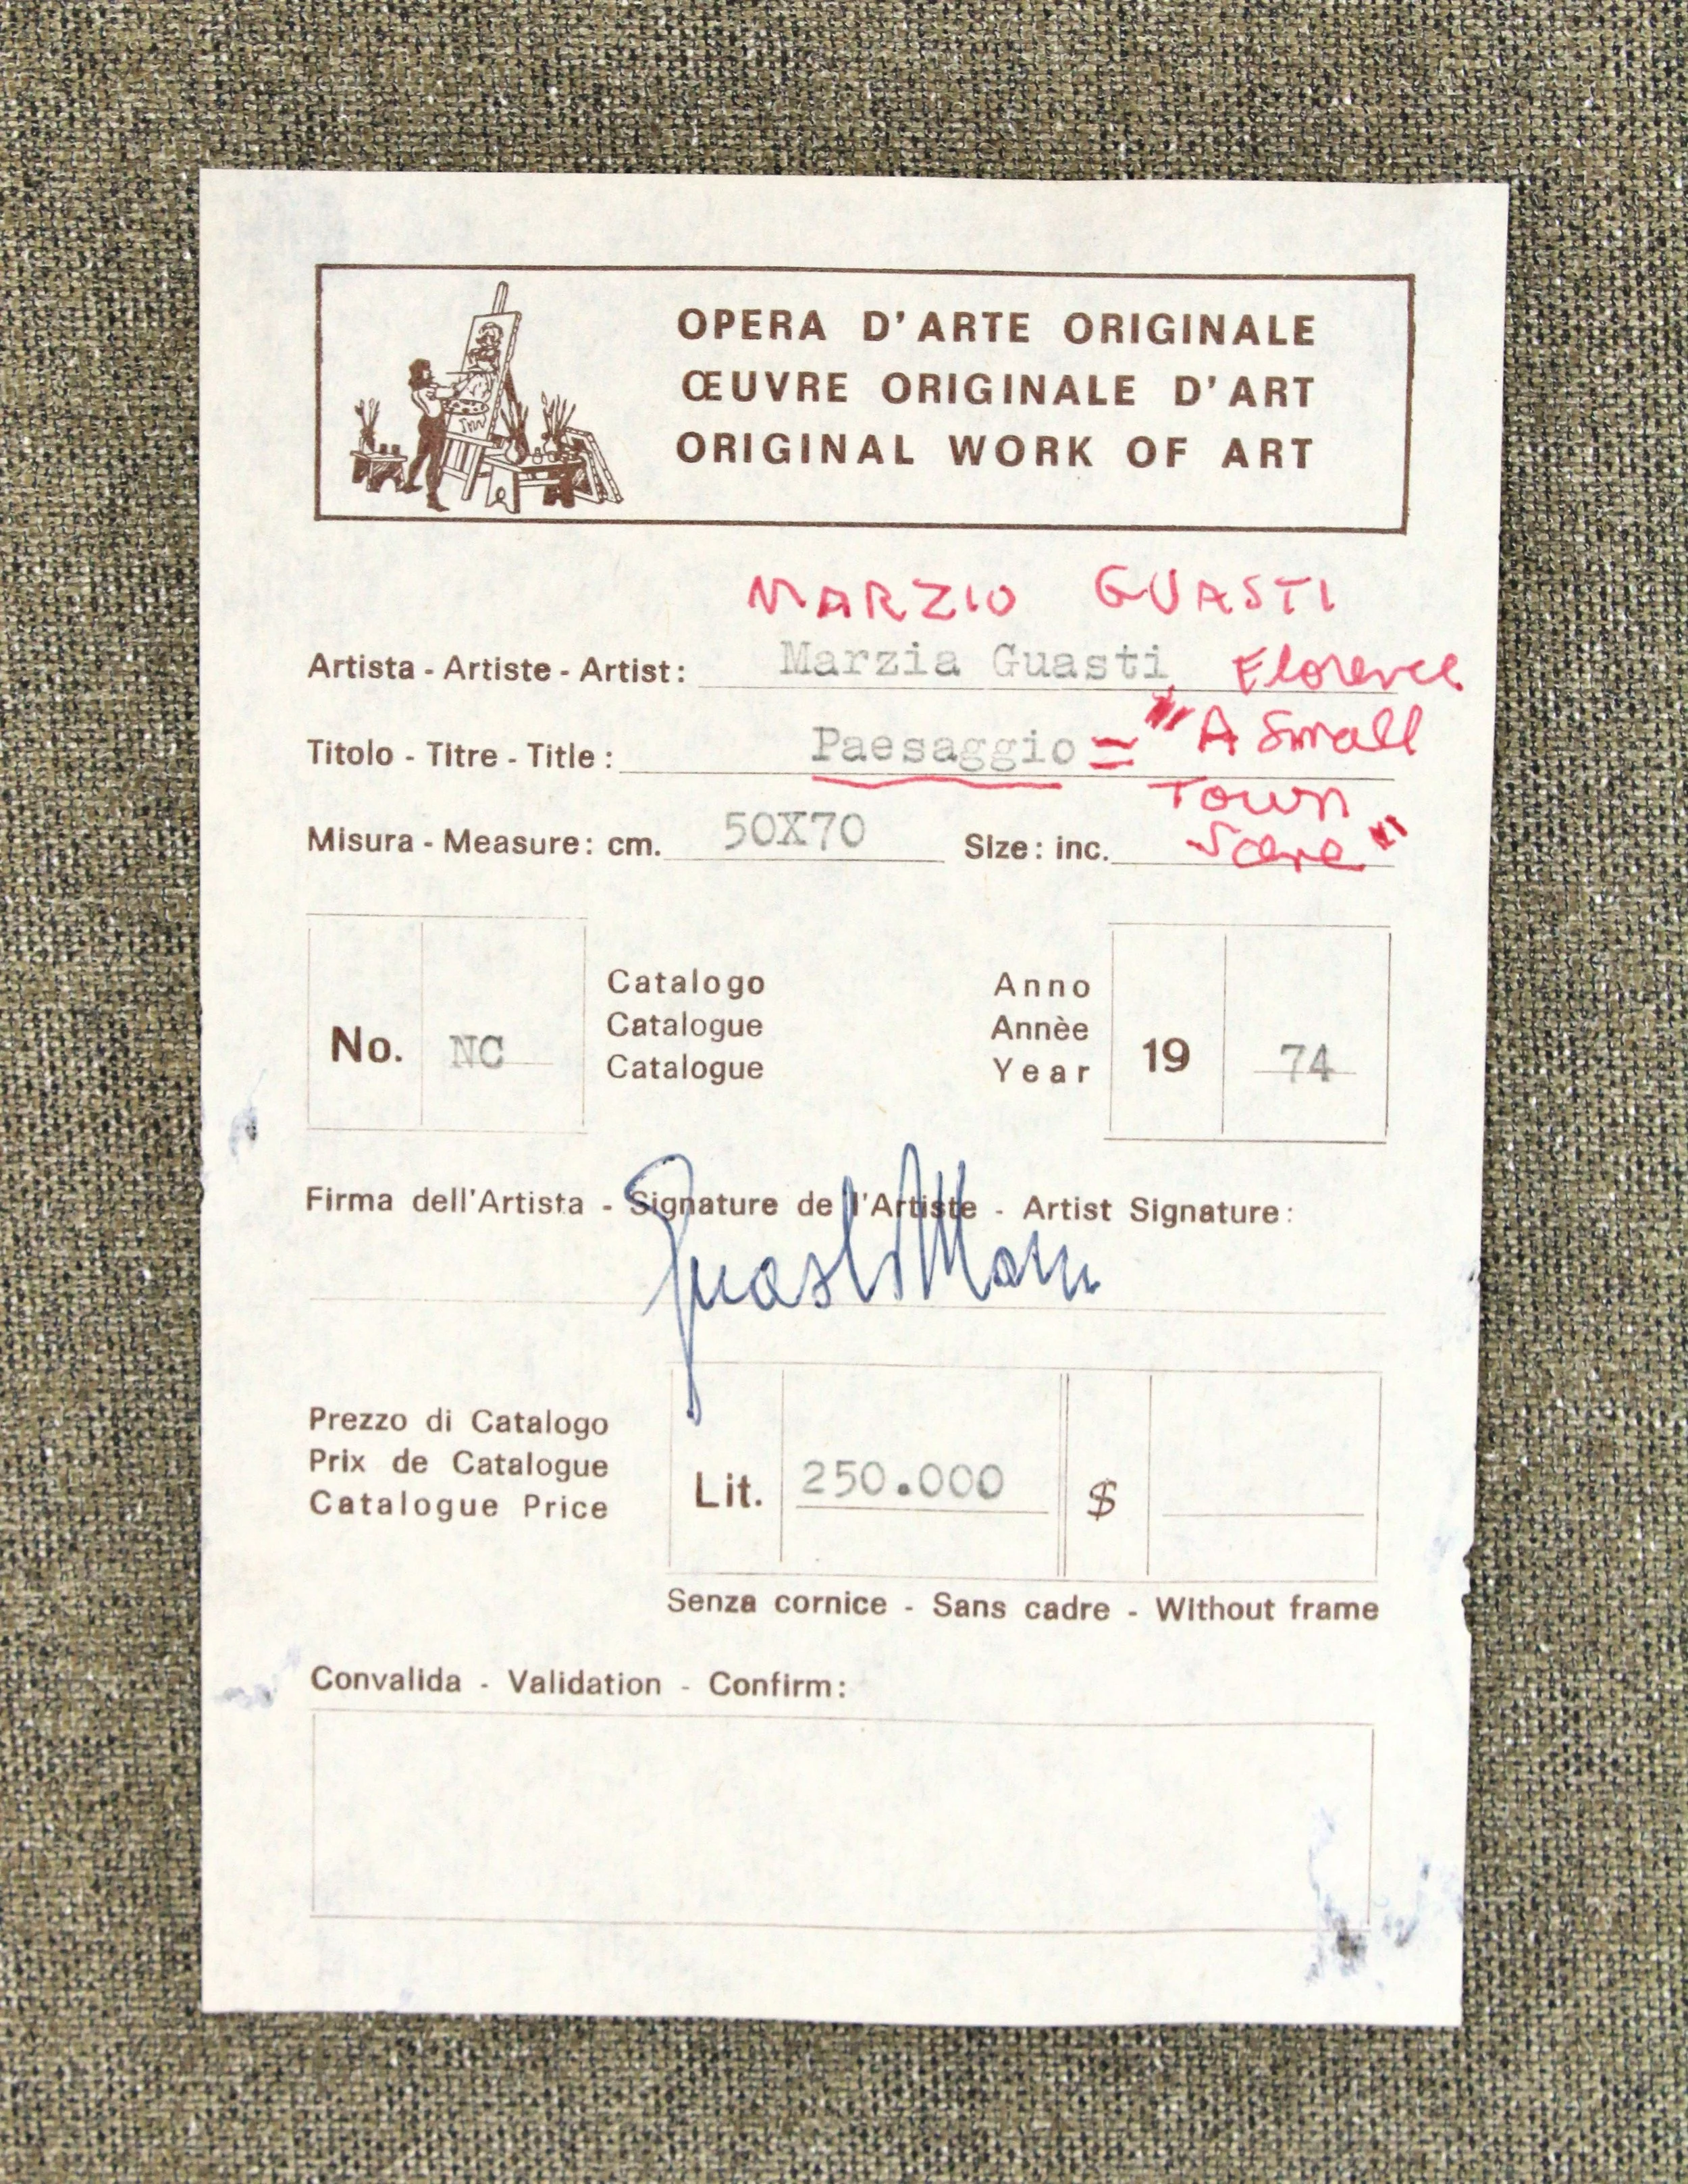 OPERA D'ARTE ORIGINALE
ŒUVRE ORIGINALE D'ART
ORIGINAL WORK OF ART
MARZIO GUASTI
Artista - Artiste - Artist: Marzia Guasti Florence
Titolo - Titre - Title: Paesaggio = "A Small
Town
Misura - Measure: cm. 50X70 Size: inc. Scene"
Catalogo Anno
Catalogue Annèe
No. NC Catalogue Year 19 74
Firma dell'Artista - Signature de l'Artiste - Artist Signature:
Guasti
Prezzo di Catalogo
Prix de Catalogue
Catalogue Price Lit. 250.000 $
Senza cornice - Sans cadre - Without frame
Convalida - Validation - Confirm: